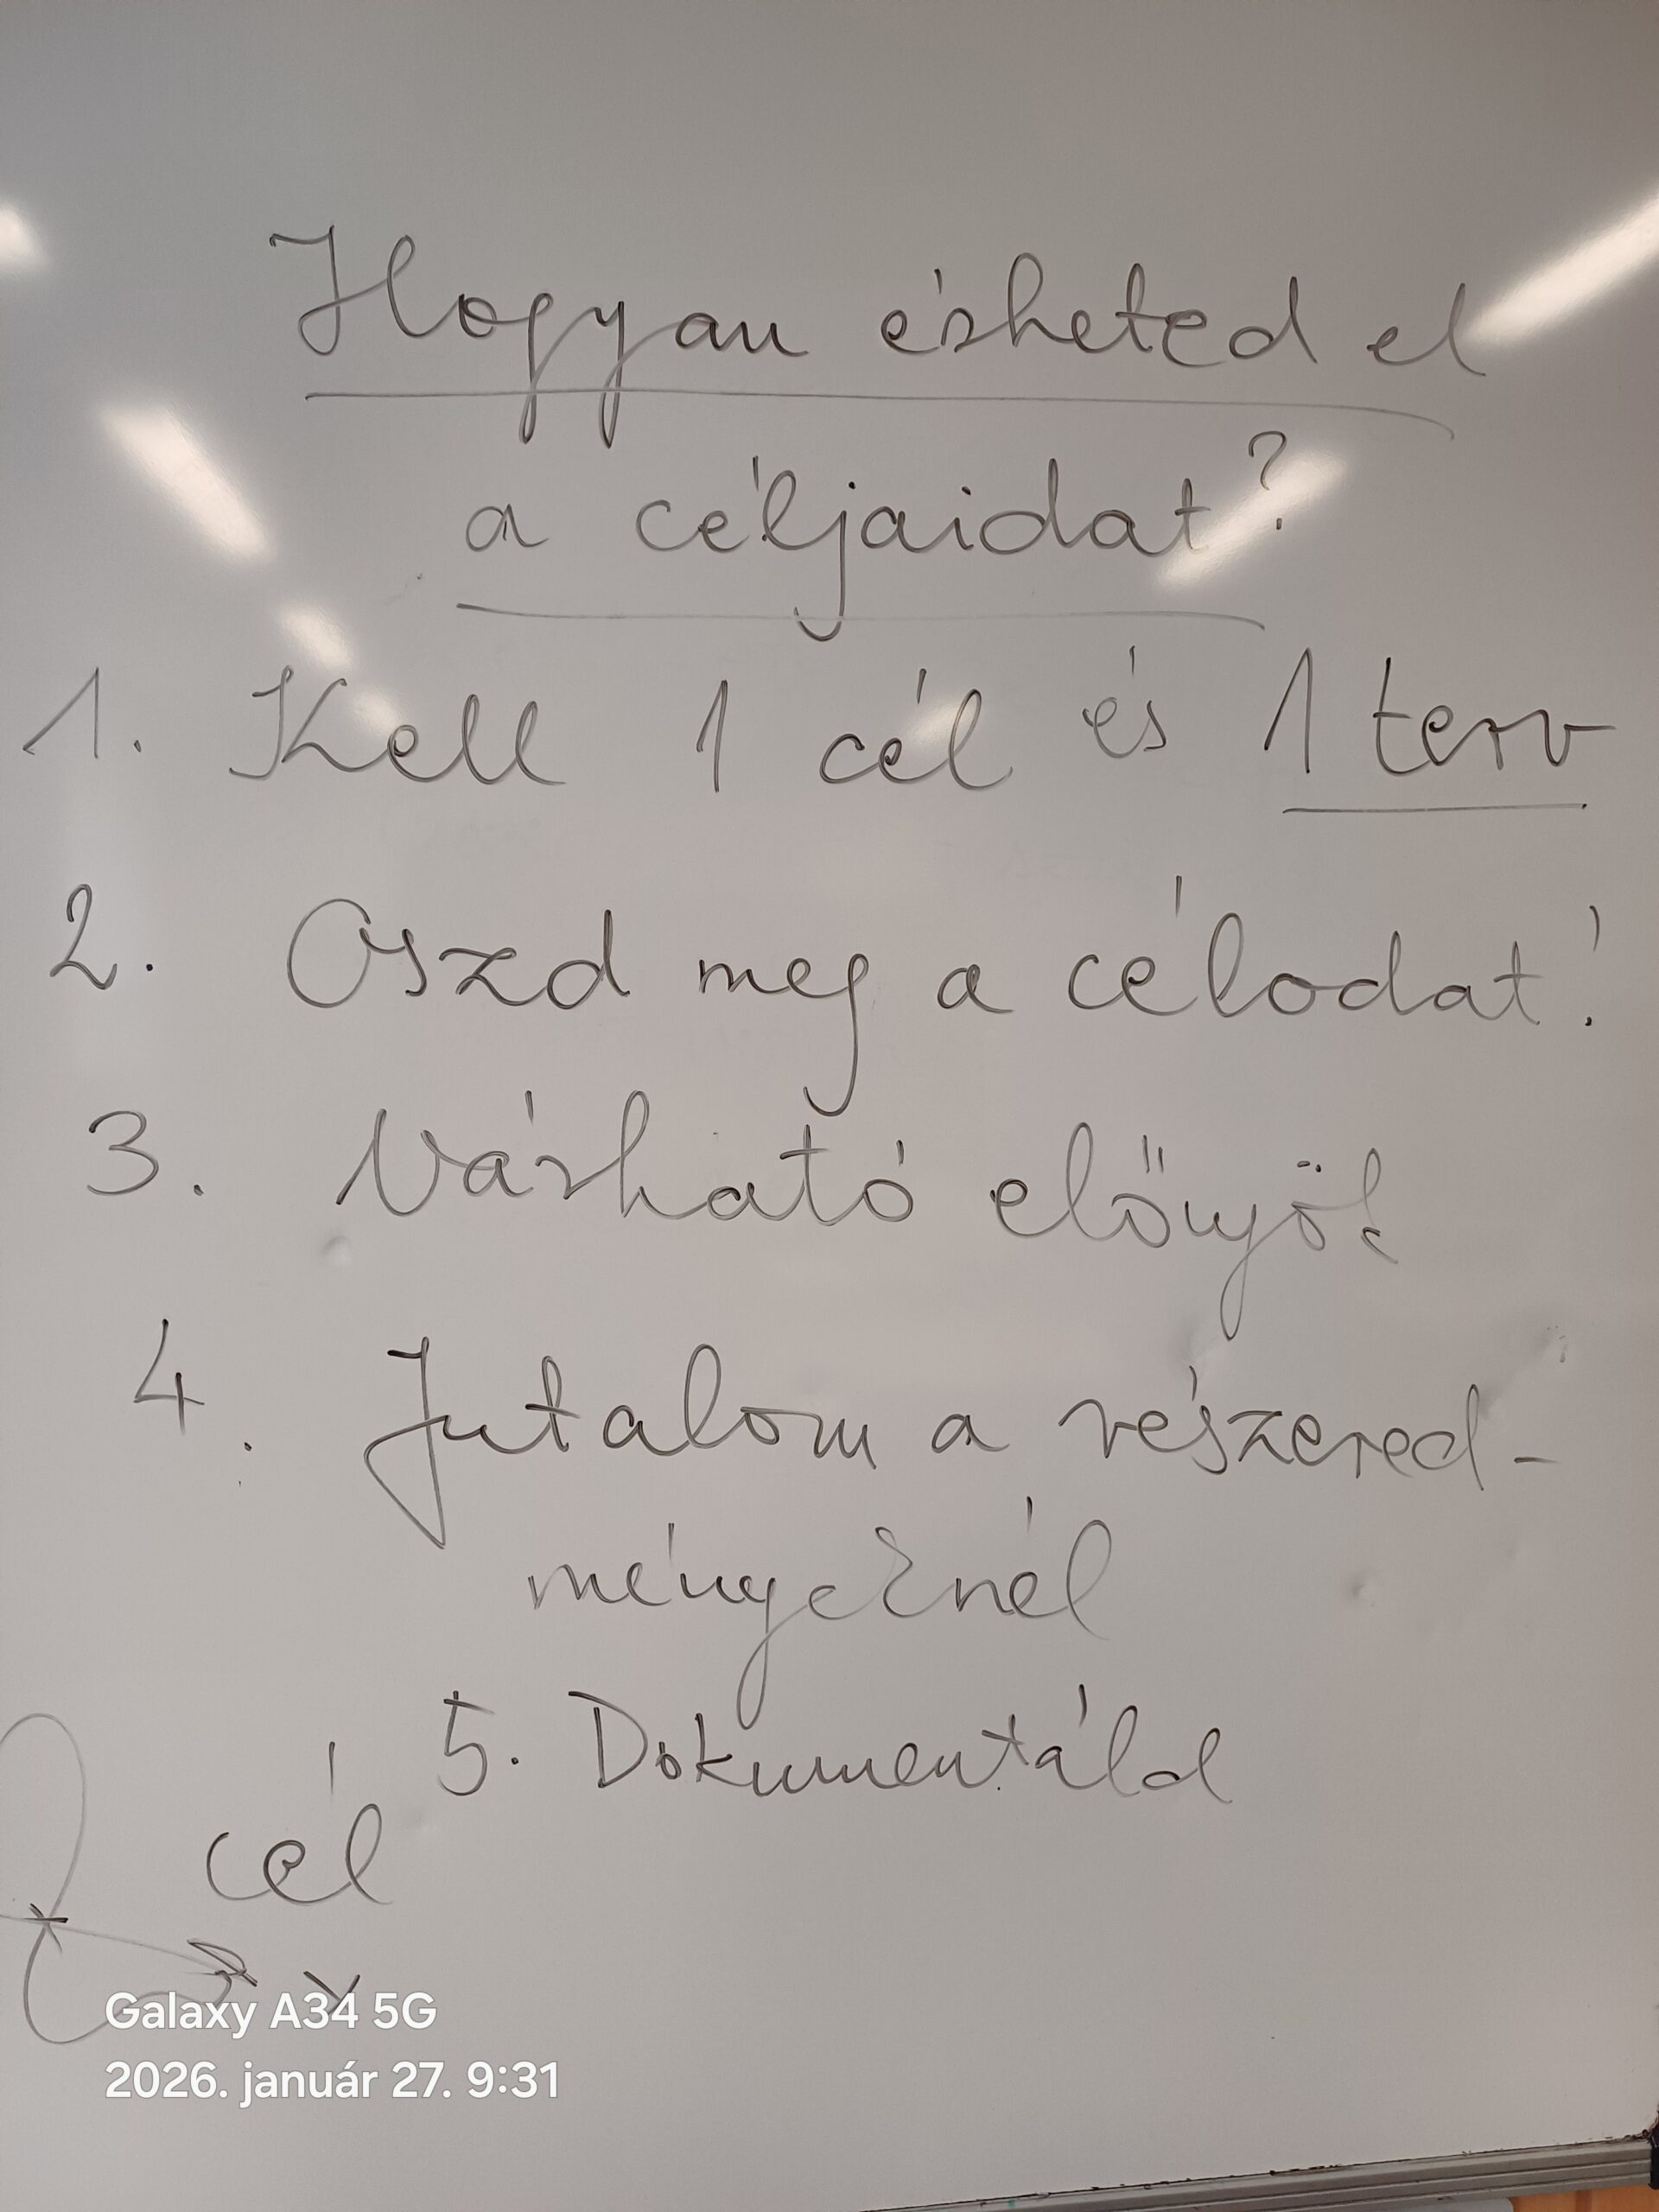 Hogyan érheted el
a céljaidat?
1. Kell 1 cél és 1 terv
2. Oszd meg a célodat!
3. Várható előnyök
4. Jutalom a részered-
ményeknél
5. Dokumentáld
cél
Galaxy A34 5G
2026. január 27. 9:31